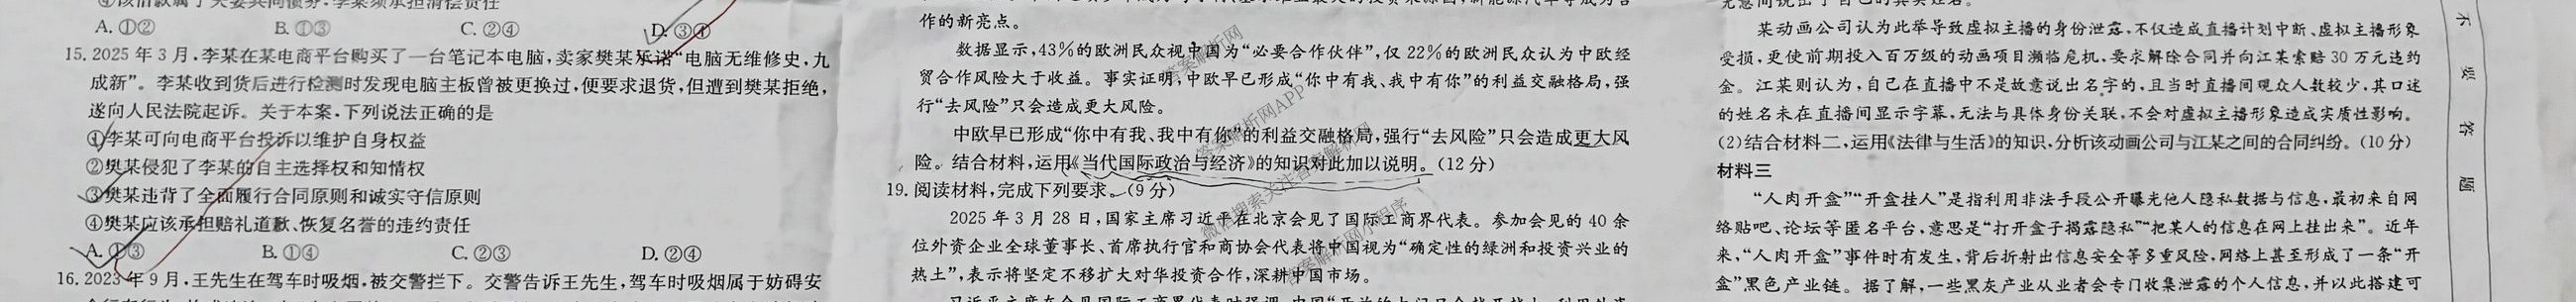 ④该借款属于夫妻共同债务,李某须承担清偿责任
A. ①② B. ①③ C. ②④ D. ③④
15. 2025 年 3 月,李某在某电商平台购买了一台笔记本电脑,卖家樊某承诺“电脑无维修史,九
成新”。李某收到货后进行检测时发现电脑主板曾被更换过,便要求退货,但遭到樊某拒绝,
遂向人民法院起诉。关于本案,下列说法正确的是
①李某可向电商平台投诉以维护自身权益
②樊某侵犯了李某的自主选择权和知情权
③樊某违背了全面履行合同原则和诚实守信原则
④樊某应该承担赔礼道歉、恢复名誉的违约责任
A. ①③ B. ①④ C. ②③ D. ②④
16. 2023 年 9 月,王先生在驾车时吸烟,被交警拦下。交警告诉王先生,驾车时吸烟属于妨碍安
作的新亮点。
数据显示,43%的欧洲民众视中国为“必要合作伙伴”,仅 22%的欧洲民众认为中欧经
贸合作风险大于收益。事实证明,中欧早已形成“你中有我、我中有你”的利益交融格局,强
行“去风险”只会造成更大风险。
中欧早已形成“你中有我、我中有你”的利益交融格局,强行“去风险”只会造成更大风
险。结合材料,运用《当代国际政治与经济》的知识对此加以说明。(12 分)
19. 阅读材料,完成下列要求。(9 分)
2025 年 3 月 28 日,国家主席习近平在北京会见了国际工商界代表。参加会见的 40 余
位外资企业全球董事长、首席执行官和商协会代表将中国视为“确定性的绿洲和投资兴业的
热土”,表示将坚定不移扩大对华投资合作,深耕中国市场。
某动画公司认为此举导致虚拟主播的身份泄露,不仅造成直播计划中断、虚拟主播形象
受损,更使前期投入百万级的动画项目濒临危机,要求解除合同并向江某索赔 30 万元违约
金。江某则认为,自己在直播中不是故意说出名字的,且当时直播间观众人数较少,其口述
的姓名未在直播间显示字幕,无法与具体身份关联,不会对虚拟主播形象造成实质性影响。
(2)结合材料二,运用《法律与生活》的知识,分析该动画公司与江某之间的合同纠纷。(10 分)
材料三
“人肉开盒”“开盒挂人”是指利用非法手段公开曝光他人隐私数据与信息,最初来自网
络贴吧、论坛等匿名平台,意思是“打开盒子揭露隐私”“把某人的信息在网上挂出来”。近年
来,“人肉开盒”事件时有发生,背后折射出信息安全等多重风险,网络上甚至形成了一条“开
盒”黑色产业链。据了解,一些黑灰产业从业者会专门收集泄露的个人信息,并以此搭建可
不
要
答
题